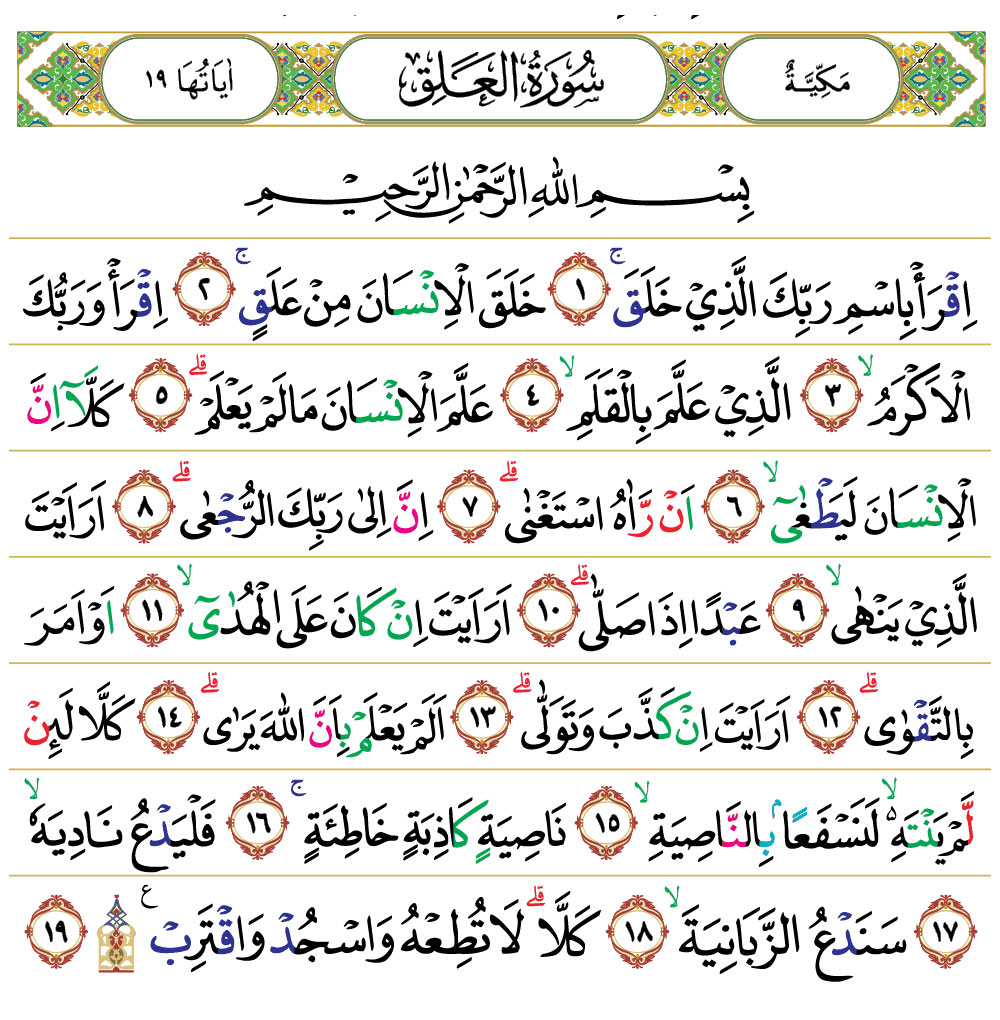 مَكِّيَّةٌ سُورَةُ الْعَلَقِ اٰيَاتُهَا ١٩
بِسْمِ اللهِ الرَّحْمٰنِ الرَّحِيْمِ
اِقْرَأْ بِاسْمِ رَبِّكَ الَّذِيْ خَلَقَ ۚ ١ خَلَقَ الْاِنْسَانَ مِنْ عَلَقٍ ۚ ٢ اِقْرَأْ وَرَبُّكَ
الْاَكْرَمُ ۙ ٣ الَّذِيْ عَلَّمَ بِالْقَلَمِ ۙ ٤ عَلَّمَ الْاِنْسَانَ مَا لَمْ يَعْلَمْ ۗ ٥ كَلَّآ اِنَّ
الْاِنْسَانَ لَيَطْغٰىٓ ۙ ٦ اَنْ رَّاٰهُ اسْتَغْنٰى ۗ ٧ اِنَّ اِلٰى رَبِّكَ الرُّجْعٰى ۗ ٨ اَرَاَيْتَ
الَّذِيْ يَنْهٰى ۙ ٩ عَبْدًا اِذَا صَلّٰى ۗ ١٠ اَرَاَيْتَ اِنْ كَانَ عَلَى الْهُدٰىٓ ۙ ١١ اَوْ اَمَرَ
بِالتَّقْوٰى ۗ ١٢ اَرَاَيْتَ اِنْ كَذَّبَ وَتَوَلّٰى ۗ ١٣ اَلَمْ يَعْلَمْ بِاَنَّ اللهَ يَرٰى ۗ ١٤ كَلَّا لَىِٕنْ
لَّمْ يَنْتَهِ ۙ لَنَسْفَعًاۢ بِالنَّاصِيَةِ ۙ ١٥ نَاصِيَةٍ كَاذِبَةٍ خَاطِئَةٍ ۚ ١٦ فَلْيَدْعُ نَادِيَهٗ ۙ
١٧ سَنَدْعُ الزَّبَانِيَةَ ۙ ١٨ كَلَّا ۗ لَا تُطِعْهُ وَاسْجُدْ وَاقْتَرِبْ ع ۩ ١٩